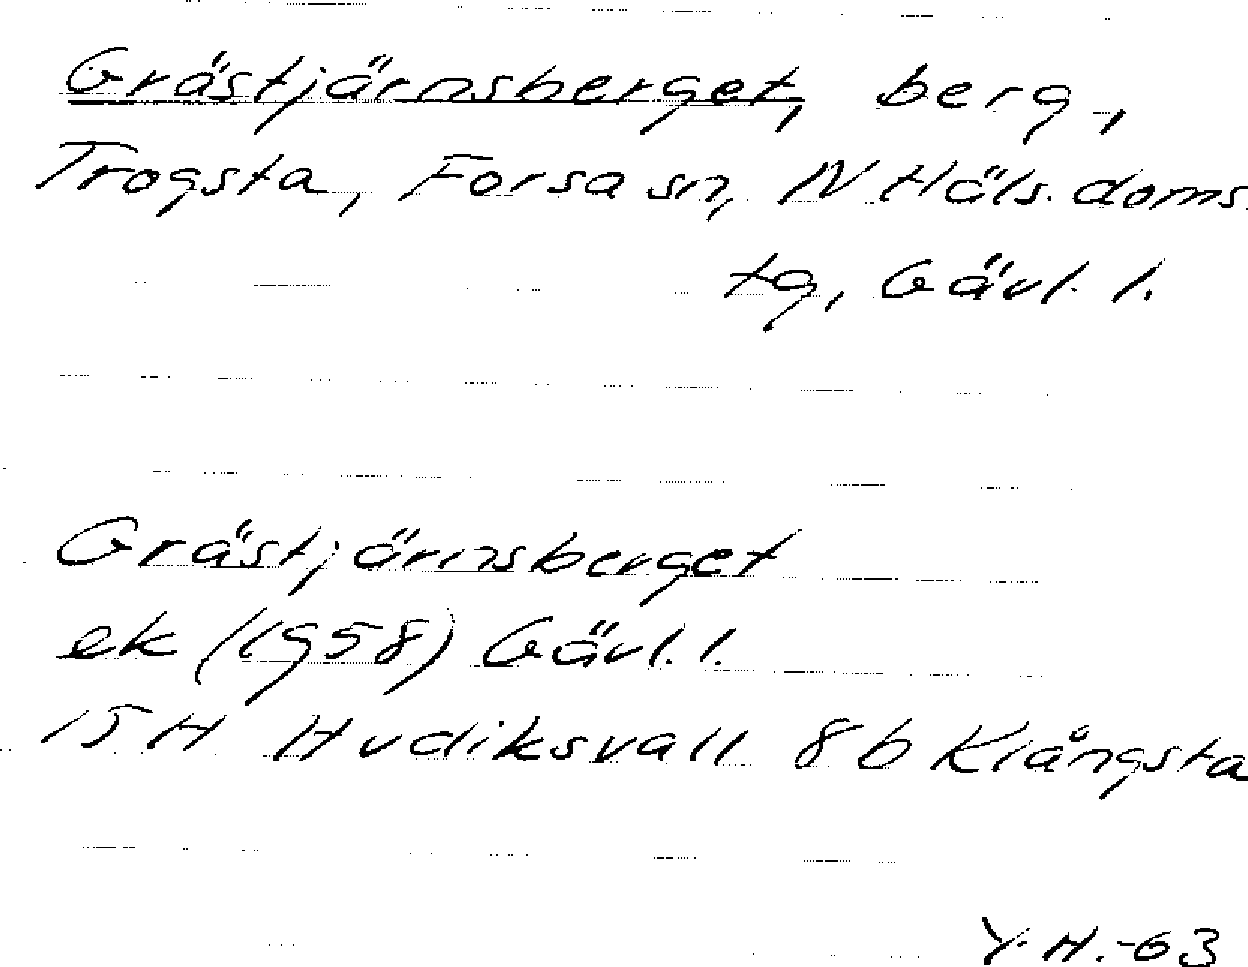 Grästjärnsberget, berg,
Trogsta, Forsa sn, N Häls. doms.
tg, Gävl. l.
Grästjärnsberget
ek (1958) Gävl. l.
15 H Hudiksvall 8 b Klångsta
Y.H.-63